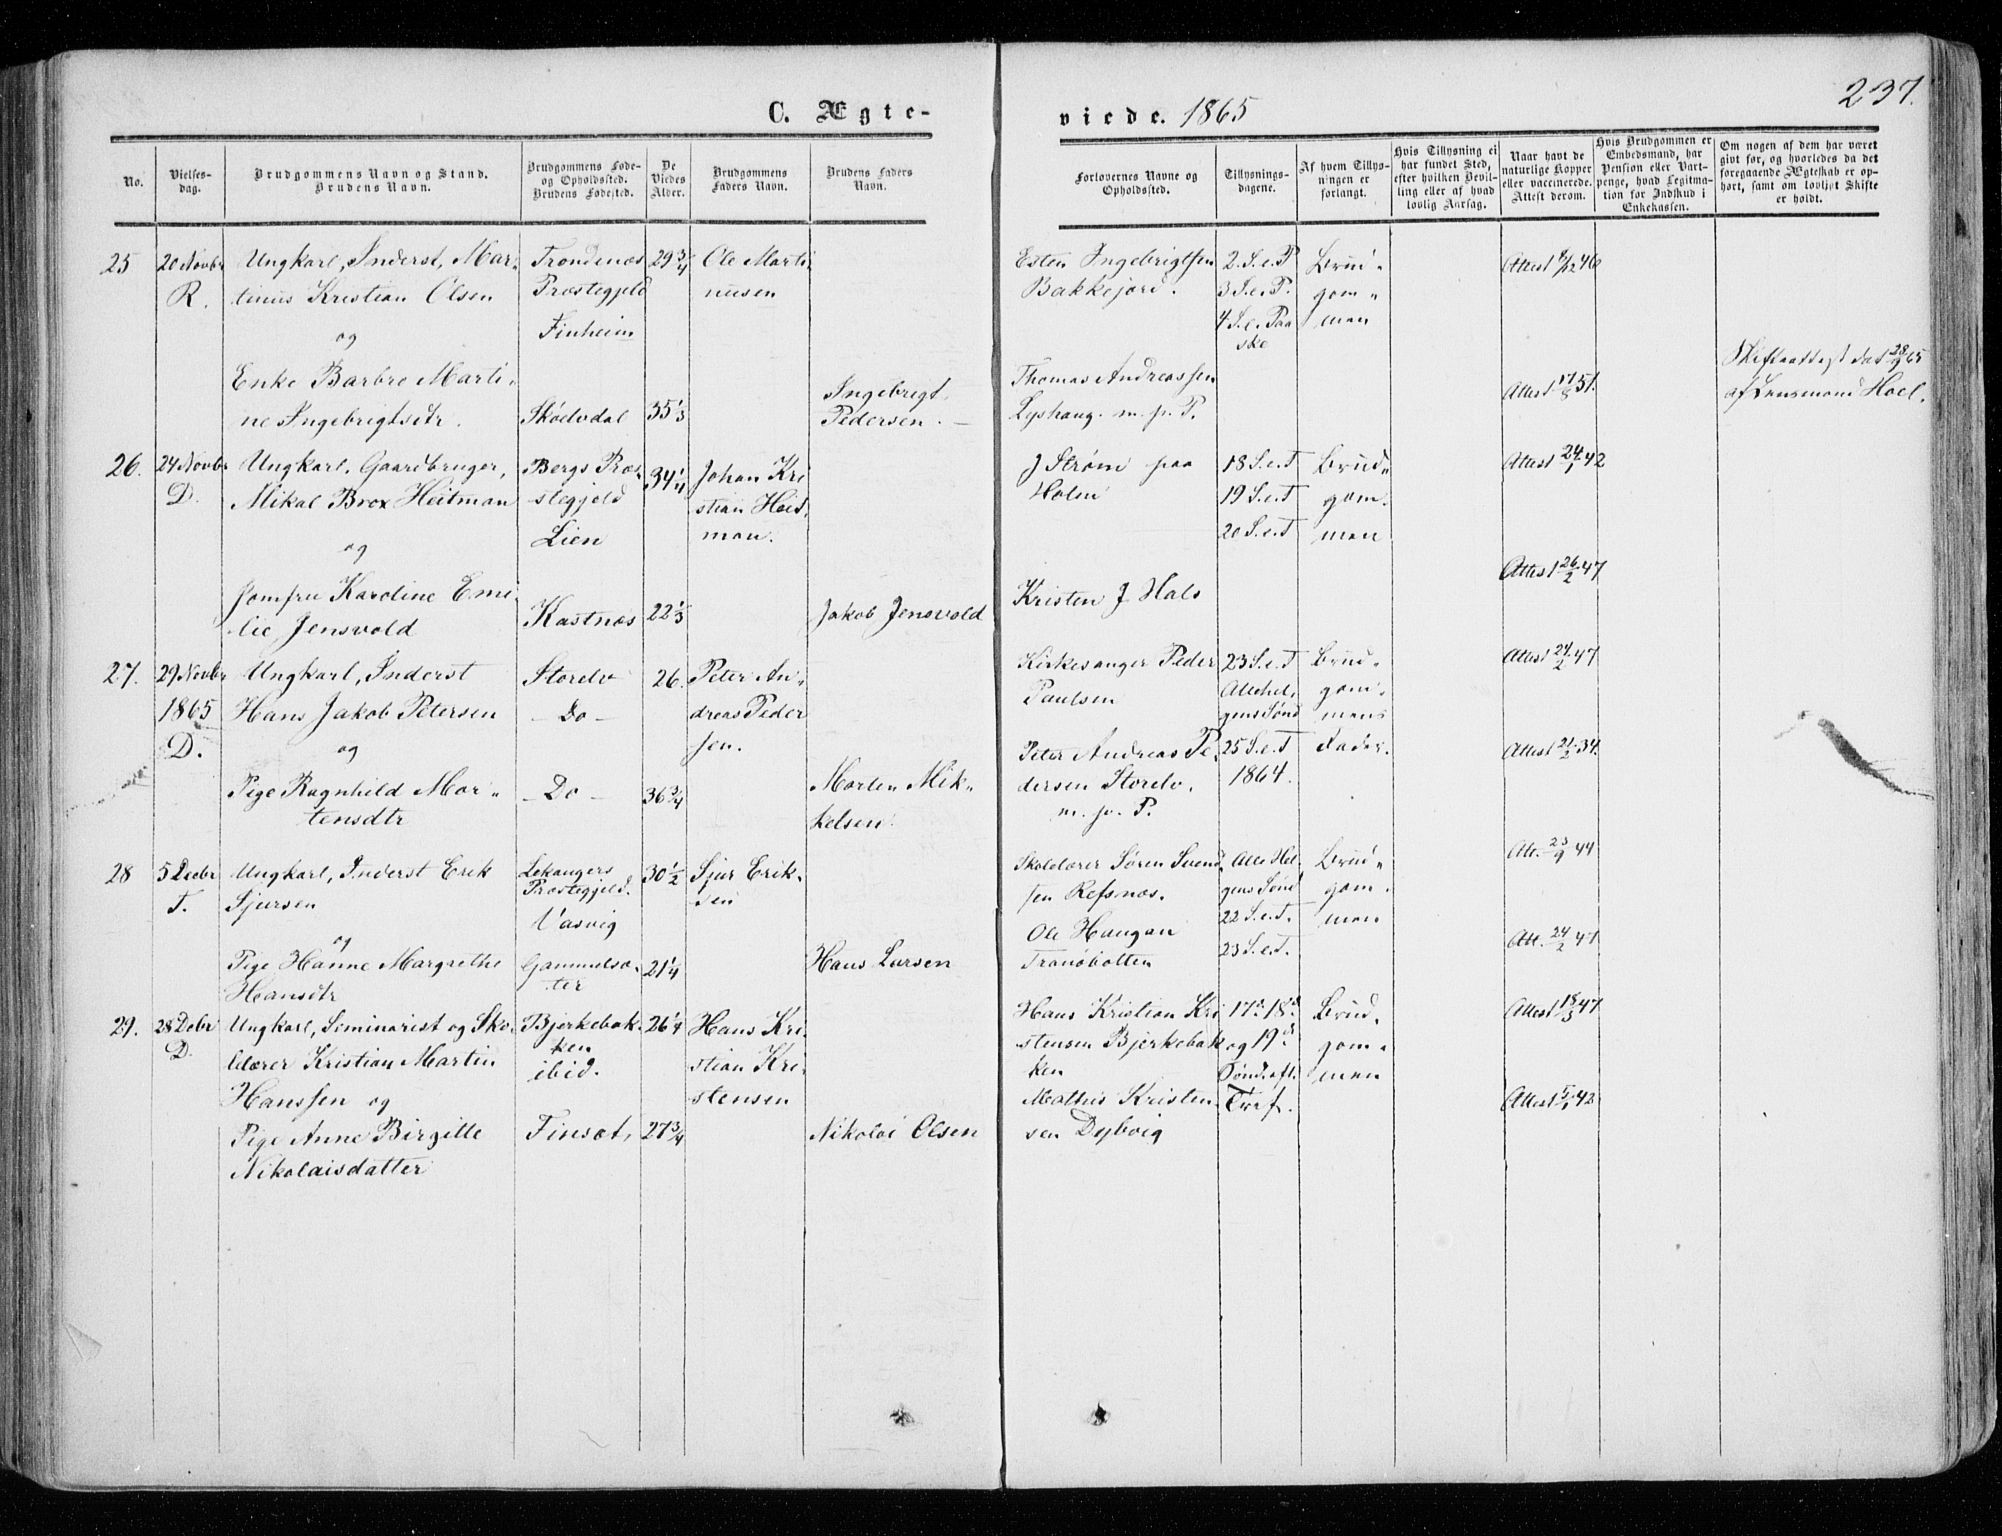 237.
C. Ægte-
viede. 1865
No.
Vielses-
dag.
Brudgommens Navn og Stand.
Brudens Navn.
Brudgommens Føde-
og Opholdssted.
Brudens Fødested.
De
Viedes
Alder.
Brudgommens
Faders Navn.
Brudens Faders
Navn.
Forlovernes Navne og
Opholdssted.
Tillysnings-
dagene.
Af hvem Tillys-
ningen er
forlangt.
Hvis Tillysning ei
har fundet Sted,
efter hvilken Bevil-
ling eller af hvad
lovlig Aarsag.
Naar havt de
naturlige Kopper
eller vaccinerede.
Attest derom.
Hvis Brudgommen er
Embedsmand, har
Pension eller Vart-
penge, hvad Legitima-
tion for Indskud i
Enkekassen.
Om nogen af dem har været
givt før, og hvorledes da det
foregaaende Ægteskab er op-
hørt, samt om lovligt Skifte
er holdt.
25
20 Novbr
R.
Ungkarl, Inderst, Mar-
tinus Kristian Olsen
og
Enke Barbro Marti-
ne Ingebrigtsdtr.
Trondenæs
Præstegjeld
Finheim
Skøelvdal
29 3/4
35 1/3
Ole Marti-
nusen
Ingebrigt
Pedersen.
Esten Ingebrigtsen
Bakkejord.
Thomas Andreassen
Lyshaug. m. p. P.
2. S. e. P
3 S. e. P.
4 S. e. Paa
ske
Brud-
gom-
men
Attest 4/12 46
Attest 17/8 51.
Skifteattest dat 28/9 65
af Lensmand Hoel.
26.
24 Novbr
D.
Ungkarl, Gaardbruger,
Mikal Brox Heitman
og
Jomfru Karoline Emi-
lie Jensvold
Bergs Præ-
stegjeld
Lien
Kastnæs
34 1/4
22 1/3
Johan Kri
stian Heit-
man.
Jakob Jensvold
J Strøm paa
Holm
Kristen J Hals
18 S. e. T
19 S. e. T
20 S. e. T
Brud-
gom-
men
Attest 24/1 42
Attest 26/2 47
27.
29 Novbr
1865
D.
Ungkarl, Inderst
Hans Jakob Petersen
og
Pige Ragnhild Mor-
tensdtr
Storelv
- Do -
- Do -
26.
36 3/4
Peter An-
dreas Peder
sen.
Morten Mik-
kelsen
Kirkesanger Peder
Paulsen
Peter Andreas Pe-
dersen Storelv,
m. p. P.
23 S. e. T
Allehel-
gens Sønd
25 S. e. T
1864.
Brud-
gom-
mens
Fader.
Attest 24/2 47
Attest 21/2 34.
28
5 Decbr
T.
Ungkarl, Inderst Erik
Sjursen
og
Pige Hanne Margrethe
Hansdtr
Lekangers
Præstegjeld.
Vasvig
Gammelsæ-
ter
30 1/2
21 1/4
Sjur Erik-
sen
Hans Larsen
Skolelærer Søren Svend-
sen Refsnæs.
Ole Haugan
Tranøbotten
Alle Hel-
gens Sønd
22 S. e. T.
23 S. e. T.
Brud-
gom-
men
Att. 23/9 44
Att. 24/2 47
29.
28 Debr
D.
Ungkarl, Seminarist og Sko-
lelærer Kristian Martin
Hanssen og
Pige Anne Birgitte
Nikolaisdatter
Bjerkebak-
ken
ibid.
Finsæt,
26 1/4
27 3/4
Hans Kri-
stian Kri-
stensen
Nikolai Olsen
Hans Kristian Kri
stensen Bjerkebak
ken
Mathis Kristen-
sen Dybvig
17de 18de
og 19de
Sønd. eft.
Tref.
Brud-
gom-
men
Attest 18/3 47
Attest 5/1 42